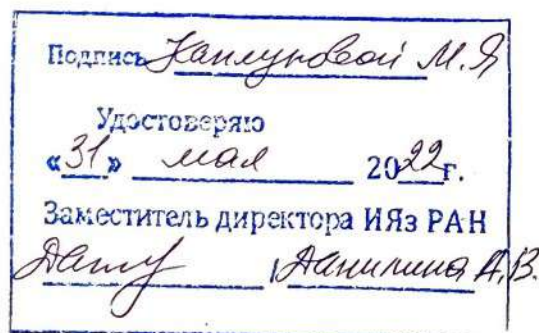 Подпись Каплуновой М.Я
Удостоверяю
«31» мая 2022г.
Заместитель директора ИЯз РАН
/ Данилина А.В.